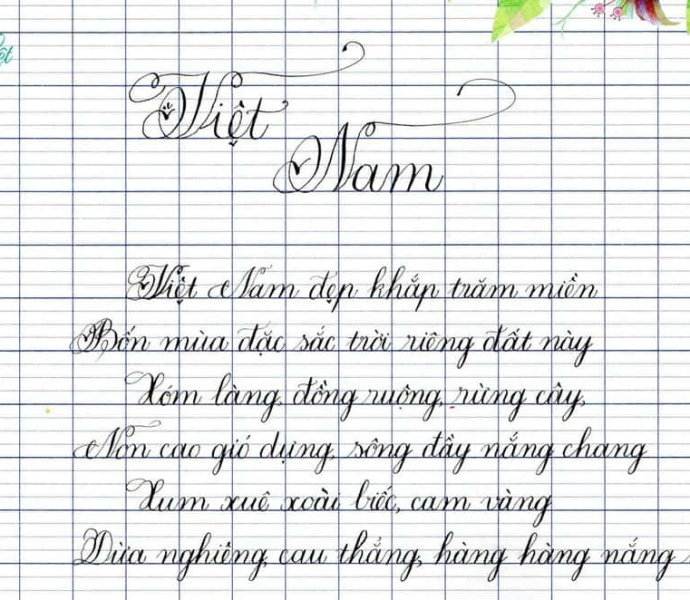 Việt
Nam
Việt Nam đẹp khắp trăm miền
Bốn mùa đặc sắc trời riêng đất này
Xóm làng, đồng ruộng, rừng cây,
Non cao gió dựng, sông đầy nắng chang
Xum xuê xoài biếc, cam vàng
Dừa nghiêng, cau thẳng, hàng hàng nắng